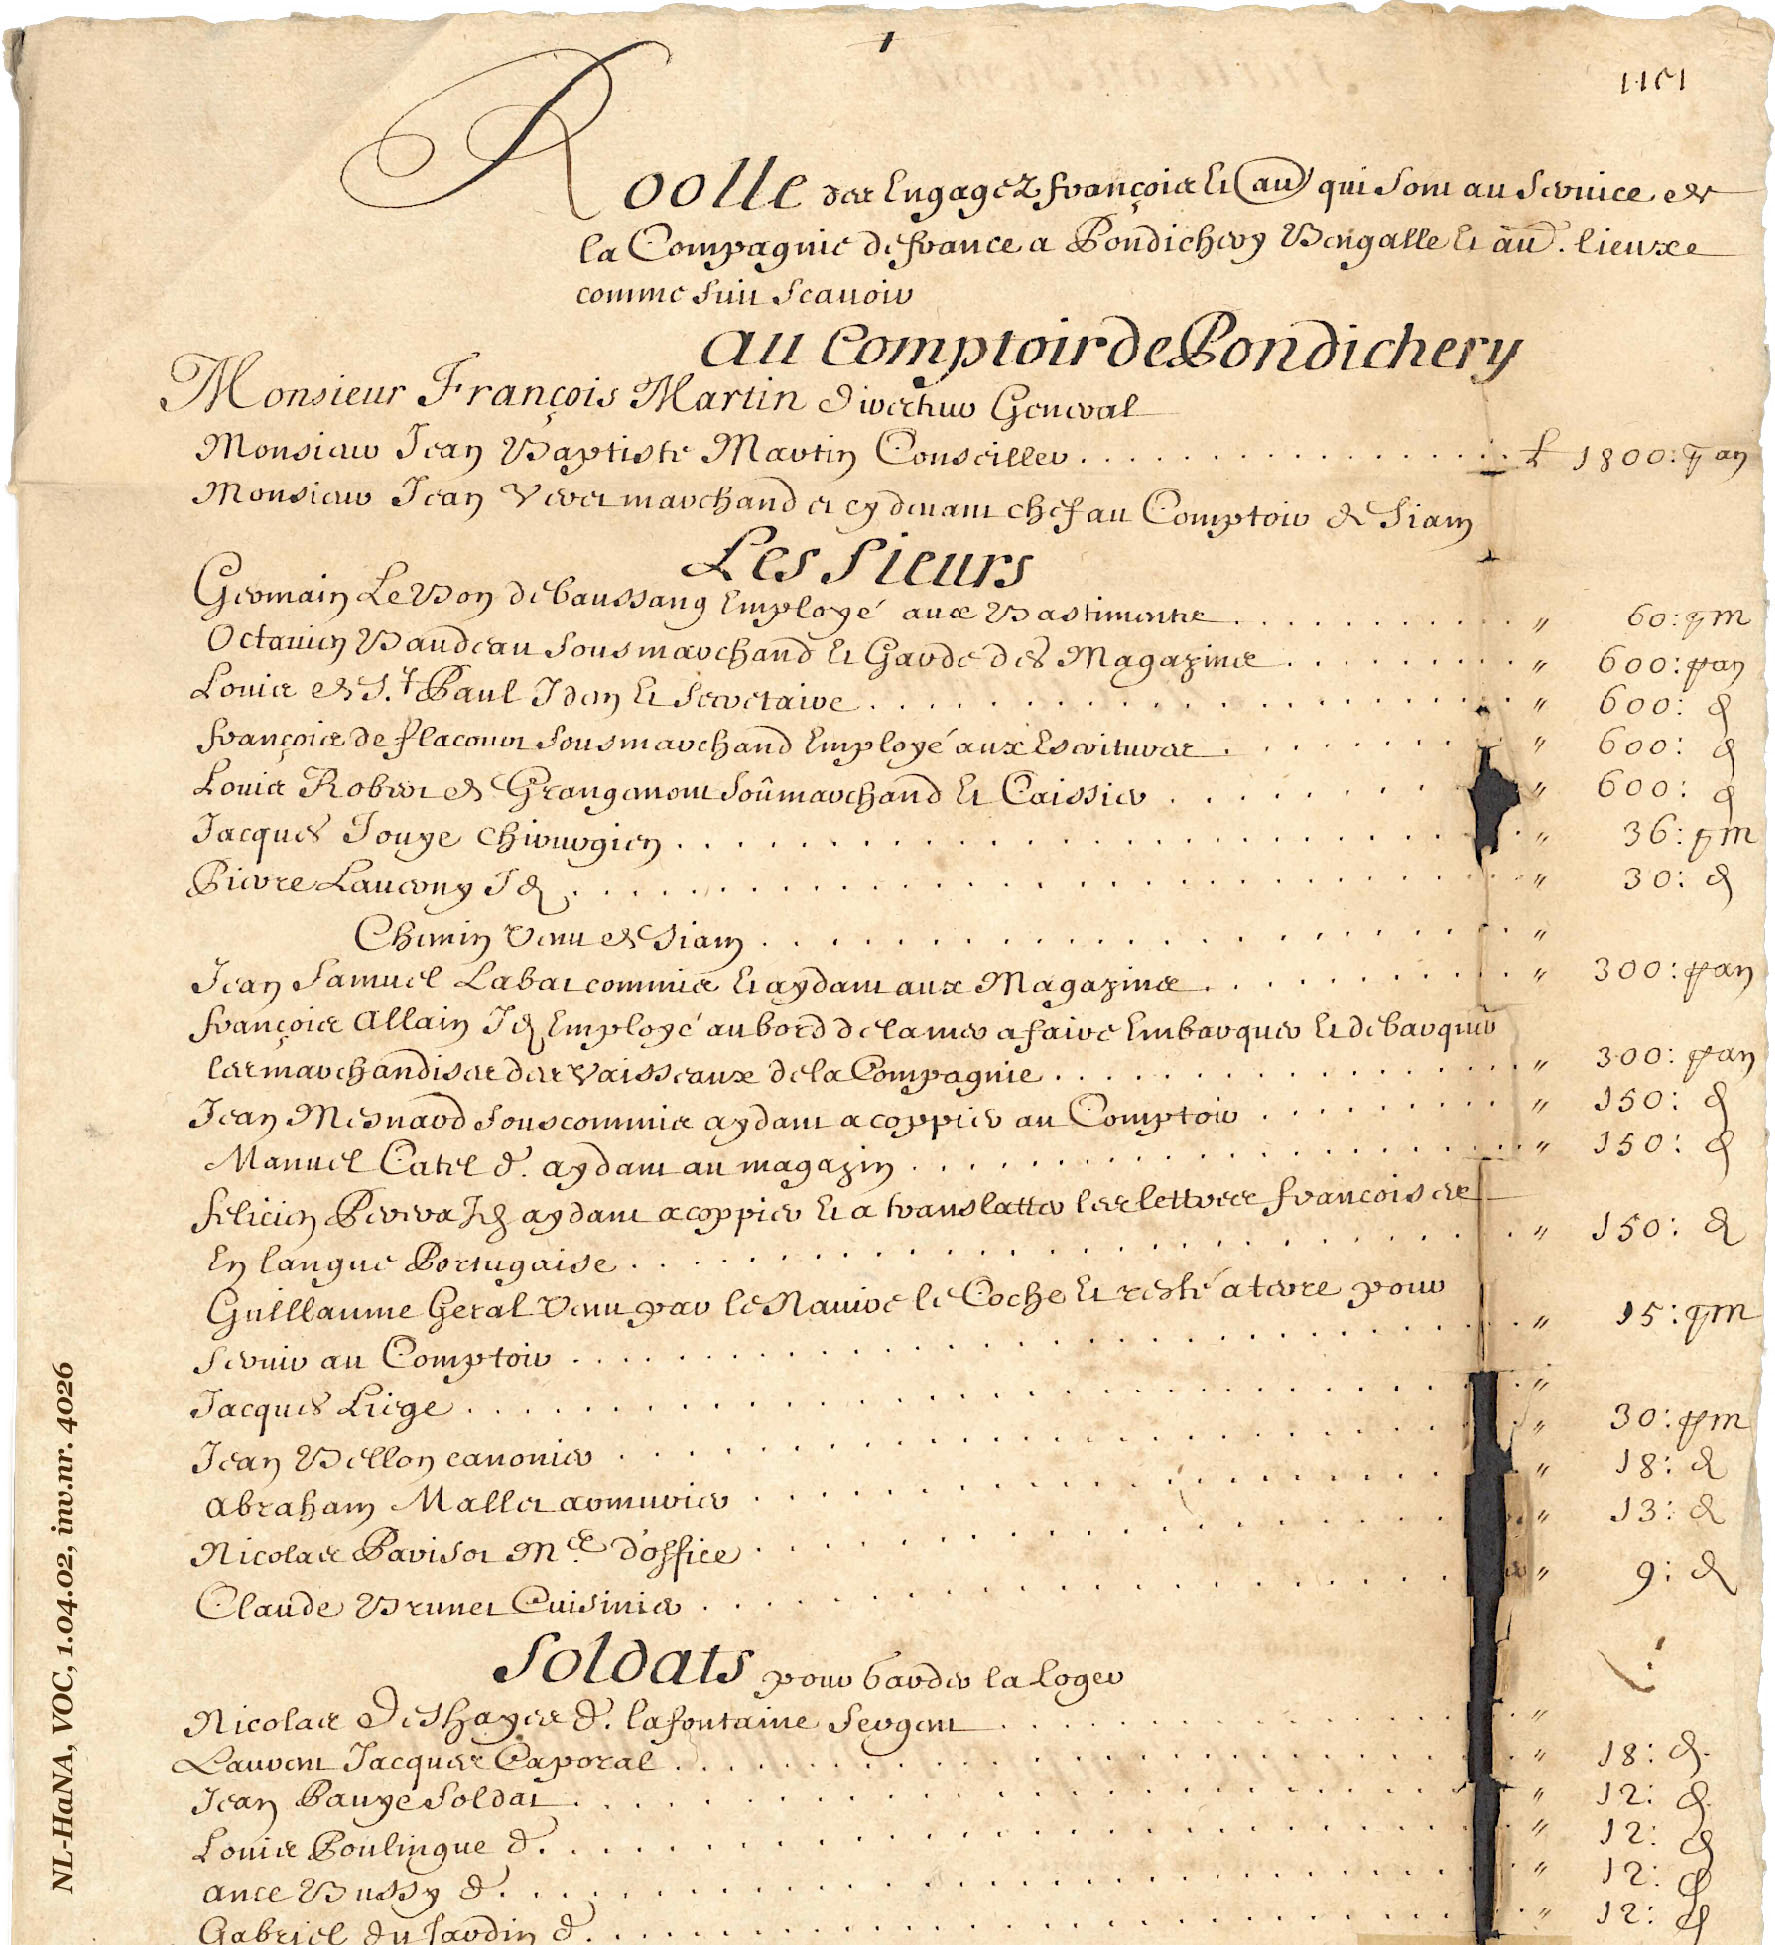 1
1151
Roolle des Engagez françois et au.̃ qui sont au service de
la Compagnie de france a Pondichery Bengalle et au.̃ lieuxe
comme suit scauoir
au Comptoir de Pondichery
Monsieur François Martin Directeur General
Monsieur Jean Baptiste Martin Conseiller . . . . . . £ 1800: p an
Monsieur Jean Veret marchand et cy deuant chef au Comptoir de Siam
Les Sieurs
Germain Le Bon de baussang Employé aux Bastiments . . . . . . " 60: p m
Octauien Baudeau sousmarchand et Garde des Magazins . . . . . . " 600: p an
Louis de S.t Paul Idem et secretaire . . . . . . " 600: d
françois de flacourt sousmarchand Employé aux Escritures . . . . . . " 600: d
Louis Robert de Grangemont soûmarchand et Caissier . . . . . . " 600: d
Jacques Jouye chirurgien . . . . . . " 36: p m
Pierre Laucony Id . . . . . . " 30: d
Chemin venu de Siam . . . . . . "
Jean Samuel Labat commis et aydant aux Magazins . . . . . . " 300: p an
françois allain Id Employé au bord de la mer a faire Embarquer et debarquer
les marchandises des Vaisseaux de la Compagnie . . . . . . " 300: p an
Jean Mesnard souscommis aydant a coppier au Comptoir . . . . . . " 150: d
Manuel Catel d.o aydant au magazin . . . . . . " 150: d
felicien Perera Id aydant a coppier et a translatter les lettres francoises
En langue Portugaise . . . . . . " 150: d
Guillaume Geral venu par le Nauire le Coche et resté a terre pour
seruir au Comptoir . . . . . . " 15: p m
Jacques Liege . . . . . . "
Jean Bellon canonier . . . . . . " 30: p m
abraham Mallet armurier . . . . . . " 18: d
Nicolas Parisot M.e d'office . . . . . . " 13: d
Claude Brunet Cuisinier . . . . . . " 9: d
Soldats pour garder la Loger
Nicolas Deshayes d. lafontaine sergent . . . . . . "
Laurent Jacques Caporal . . . . . . " 18: d
Jean Pauye soldat . . . . . . " 12: d
Louis Poulingue d.o . . . . . . " 12: d
ance Bussy d.o . . . . . . " 12: d
Gabriel du Jardin d.o . . . . . . " 12: d
NL-HaNA, VOC, 1.04.02, inv.nr. 4026